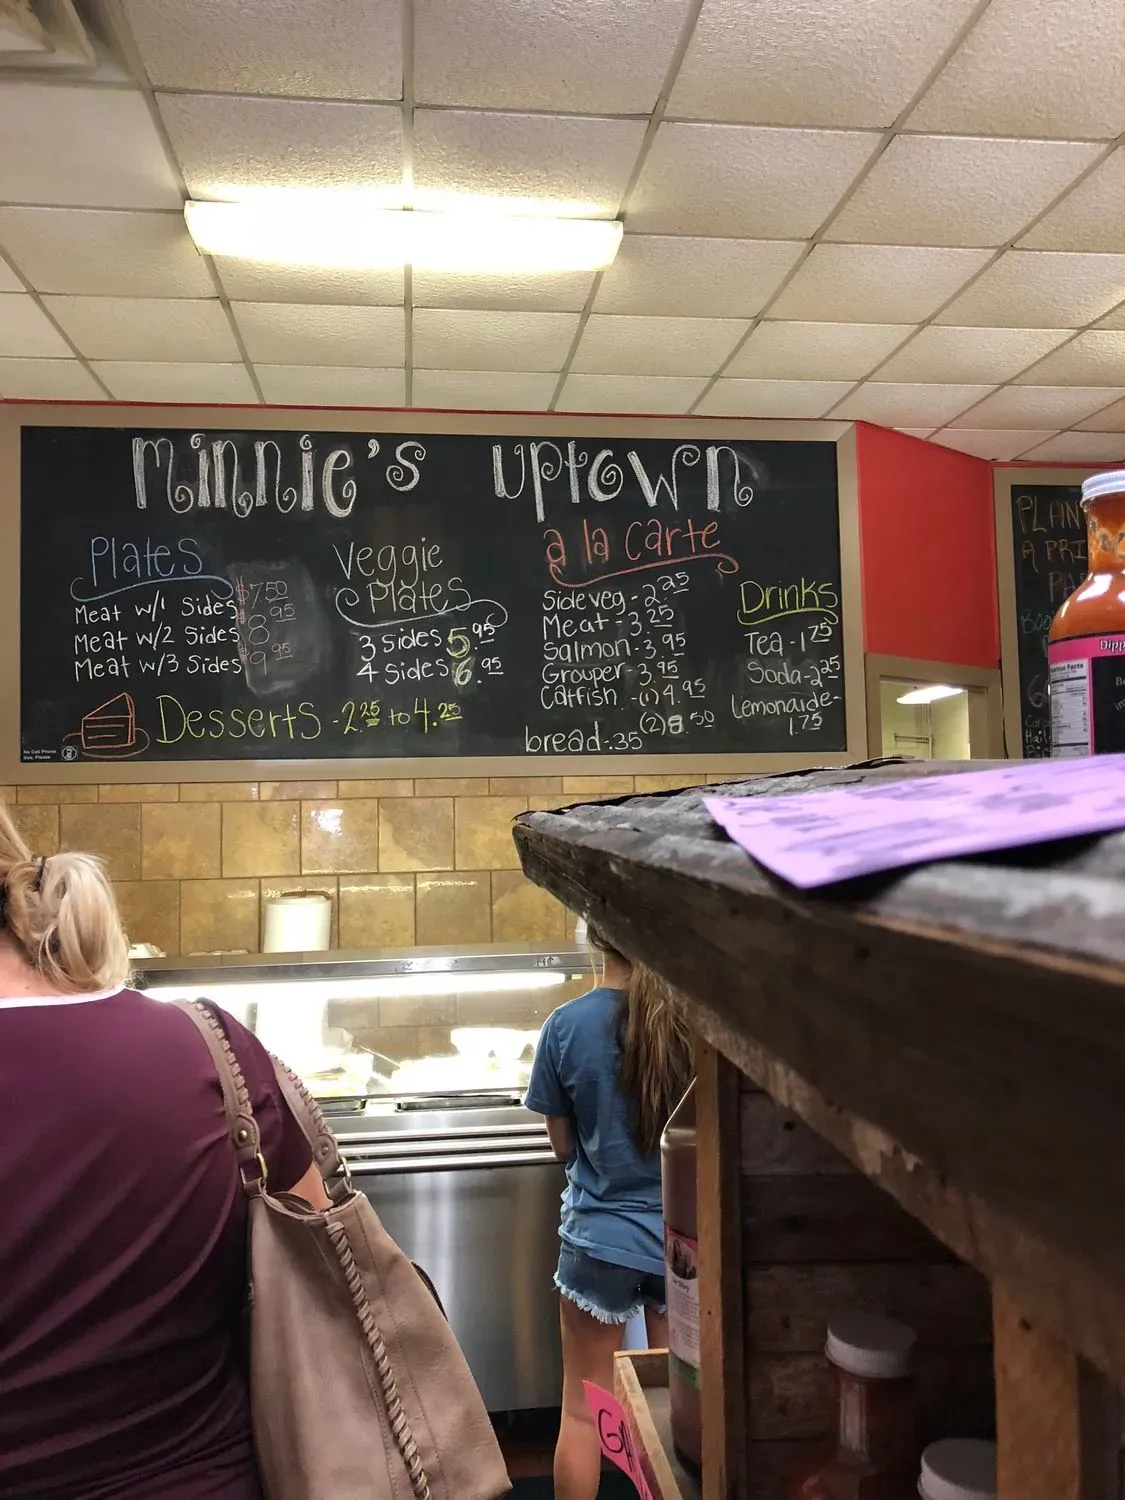 minnie's uptown
Plates
Meat w/1 Sides $7.50
Meat w/2 Sides 8.95
Meat w/3 Sides 9.95
Veggie
Plates
3 Sides 5.95
4 Sides 6.95
a la carte
Side veg - 2.25
Meat - 3.25
Salmon - 3.95
Grouper - 3.95
Catfish - (1) 4.95
(2) 8.50
bread - .35
Drinks
Tea - 1.75
Soda - 2.25
Lemonaide -
1.75
Desserts - 2.25 to 4.25
No Cell Phone
Use, Please
PLAN
A PRI
PA
Dipp